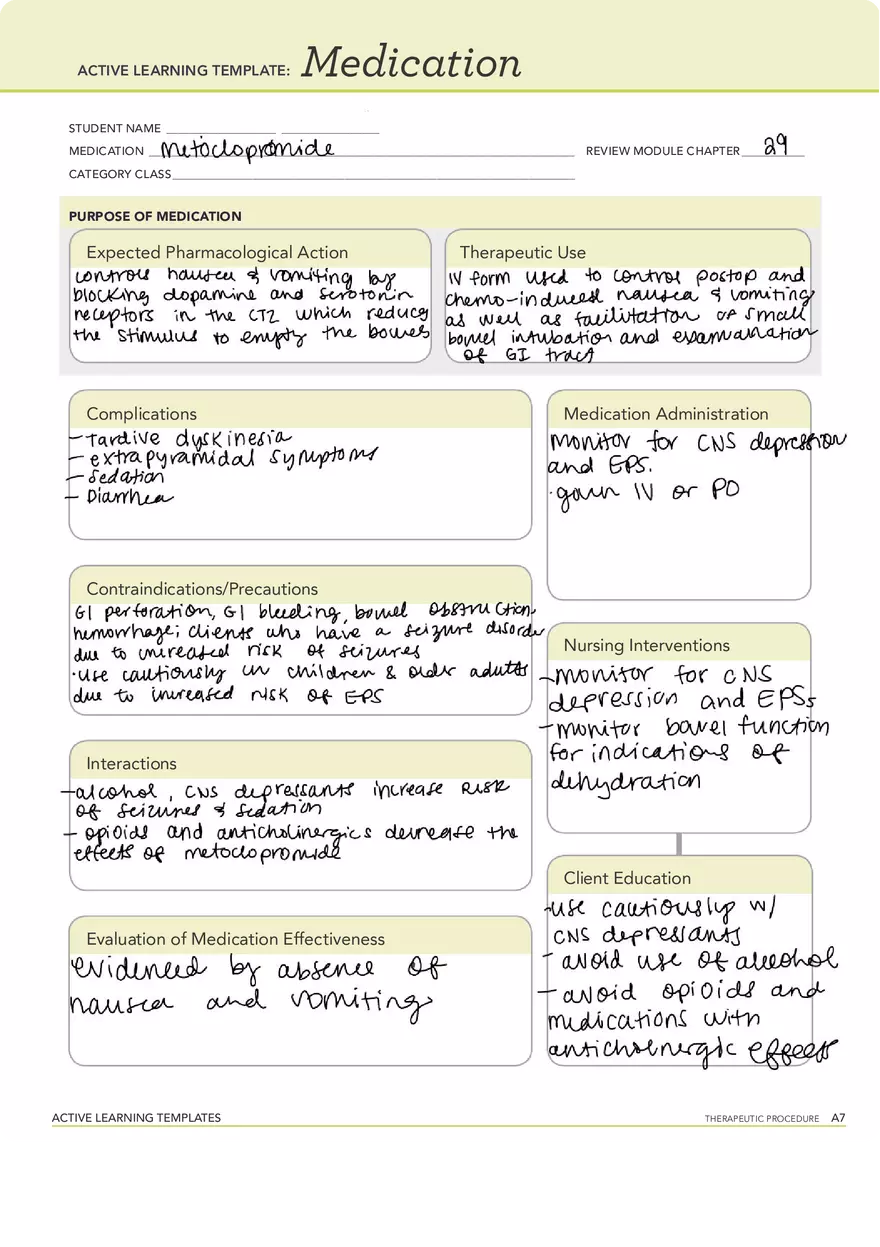 ACTIVE LEARNING TEMPLATE: Medication
STUDENT NAME
MEDICATION Metoclopromide REVIEW MODULE CHAPTER 29
CATEGORY CLASS
PURPOSE OF MEDICATION
Expected Pharmacological Action
controls nausea & vomiting by
blocking dopamine and serotonin
receptors in the CTZ which reduces
the stimulus to empty the bowels
Therapeutic Use
IV form used to control postop and
chemo-induced nausea & vomiting
as well as facilitation of small
bowel intubation and examination
of GI tract
Complications
- Tardive dyskinesia
- extrapyramidal symptoms
- Sedation
- Diarrhea
Medication Administration
monitor for CNS depression
and EPS.
IV or PO
Contraindications/Precautions
GI perforation, GI bleeding, bowel obstruction,
hemorrhage; clients who have a seizure disorder
due to increased risk of seizures
·use cautiously in children & older adults
due to increased risk of EPS
Nursing Interventions
- monitor for CNS
depression and EPSs
- monitor bowel function
for indications of
dehydration
Interactions
- alcohol, CNS depressants increase risk
of seizures & sedation
- opioids and anticholinergics decrease the
effects of metoclopromide
Client Education
- use cautiously w/
CNS depressants
- avoid use of alcohol
- avoid opioids and
medications with
anticholnergic effects
Evaluation of Medication Effectiveness
evidenced by absence of
nausea and vomiting
ACTIVE LEARNING TEMPLATES
THERAPEUTIC PROCEDURE A7